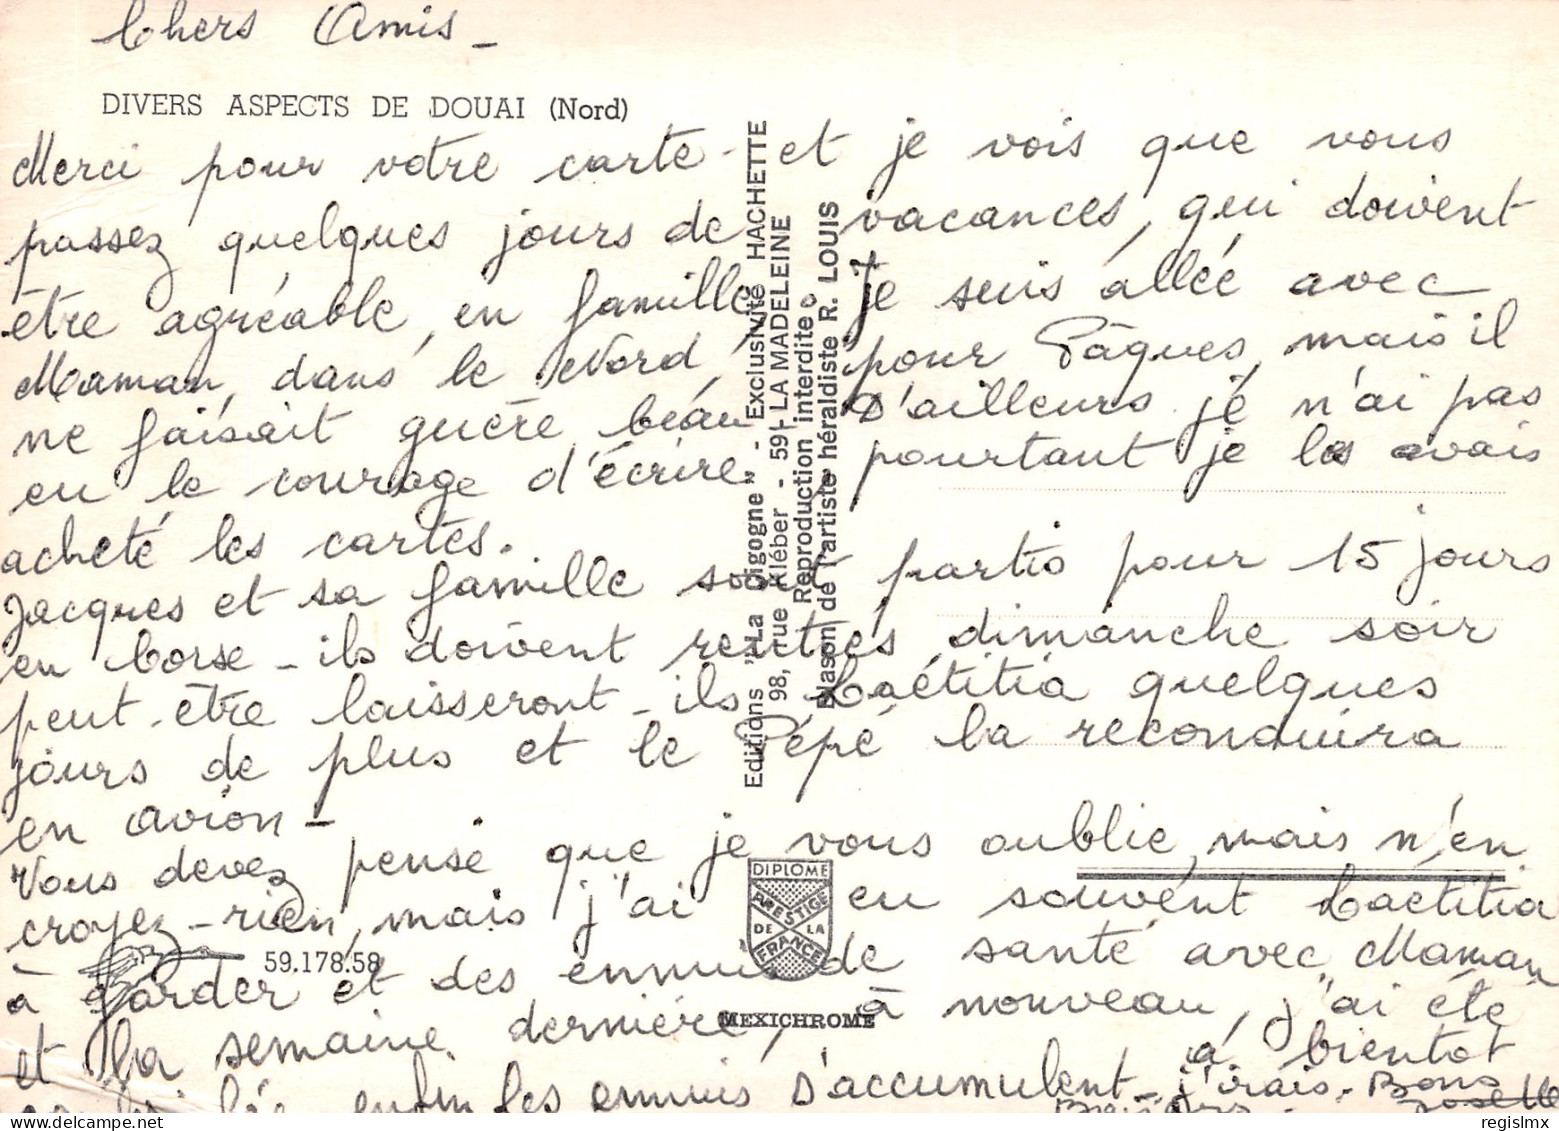 Chers Amis _
DIVERS ASPECTS DE DOUAI (Nord)
Merci pour votre carte - et je vois que vous
passez quelques jours de vacances, qui doivent
être agréable, en famille, Je suis allée avec
Maman, dans le Nord, pour Pâques, mais il
ne faisait guère beau D'ailleurs je n'ai pas
eu le courage d'écrire, pourtant je les avais
acheté les cartes.
Jacques et sa famille sont partis pour 15 jours
en Corse - ils doivent rentrés dimanche soir
peut-être laisseront-ils Laétitia quelques
jours de plus et le Pépé la reconduira
en avion -
Vous devez pensé que je vous oublie, mais n'en
croyez-rien, mais j'ai eu souvent Laetitia
à garder et des ennuis de santé avec Maman
et la semaine dernière, à nouveau, j'ai été
enfin les ennuis s'accumulent - j'irais
à bientôt
Bons
Baisers
Josette
Editions "La Cigogne" - Exclusivité HACHETTE
98, rue Kléber - 59 - LA MADELEINE
Reproduction interdite
Blason de l'artiste héraldiste R. LOUIS
DIPLOME
PRESTIGE
DE LA
FRANCE
59.178.58
MEXICHROME
regislmx